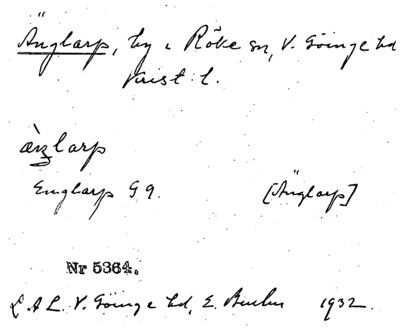 Änglarp, by i Röke sn, V. Göinge hd
Krist. l.
æ̀ŋlarp
Englarp G 9. [Änglarp]
Nr 5364.
L A L. V. Göinge hd, E.        1932.